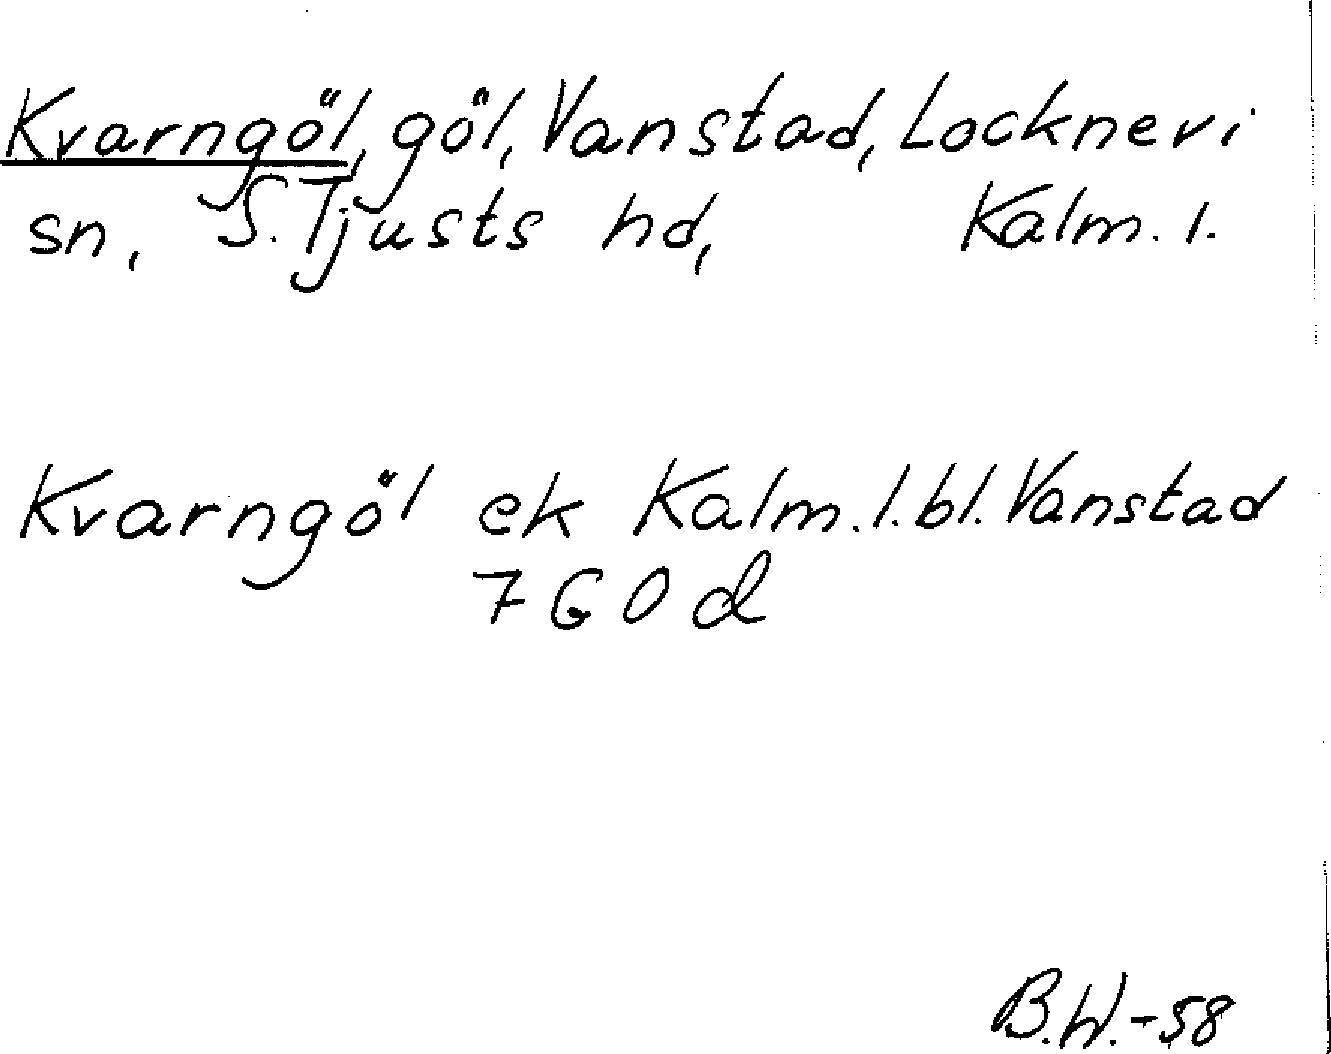 Kvarngöl, göl, Vanstad, Locknevi
sn, S. Tjusts hd, Kalm. l.
Kvarngöl ek Kalm. l. bl. Vanstad
7 G O d
B.W.-58